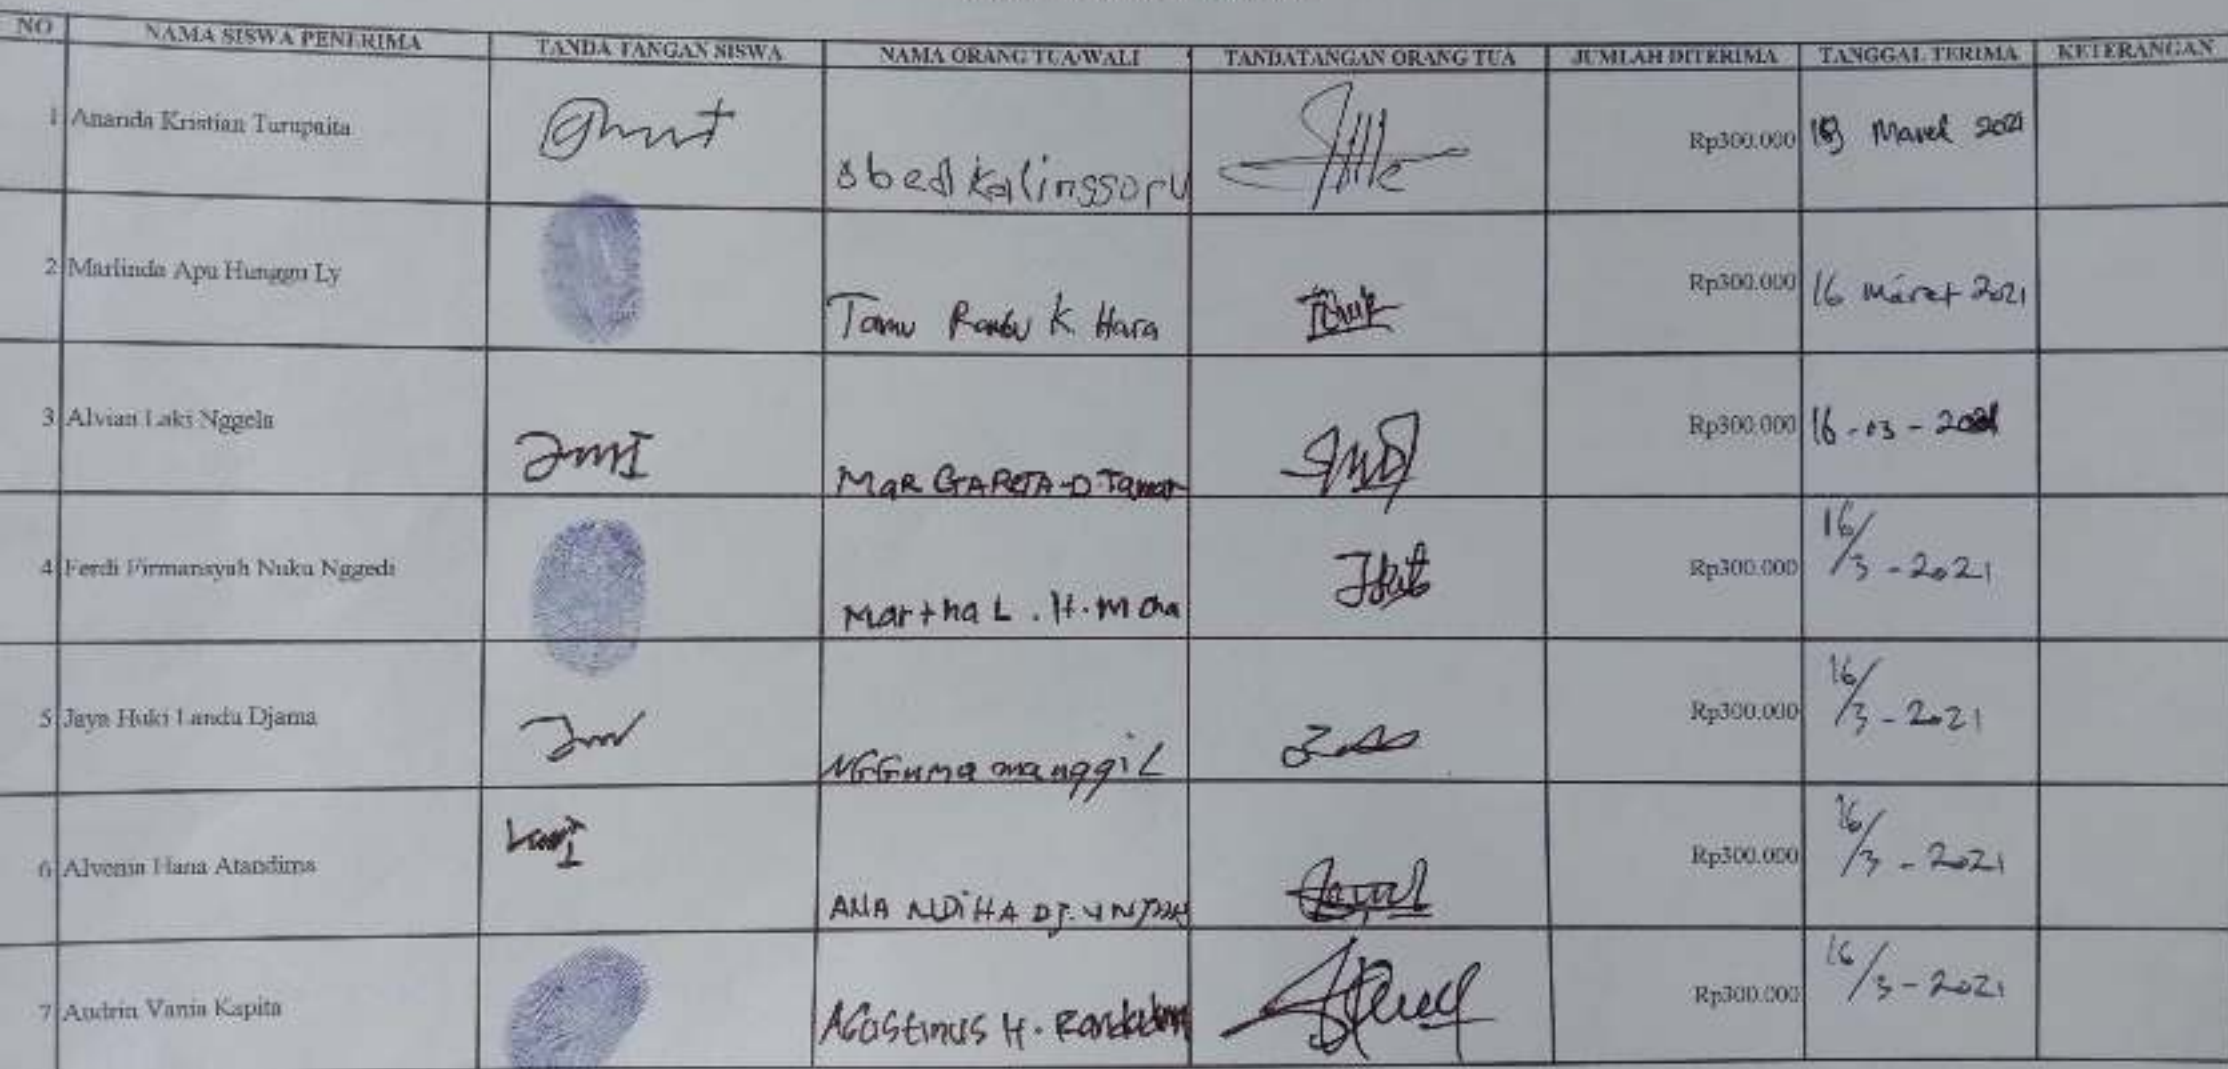 NO NAMA SISWA PENERIMA TANDA TANGAN SISWA NAMA ORANG TUA/WALI TANDATANGAN ORANG TUA JUMLAH DITERIMA TANGGAL TERIMA KETERANGAN
1 Ananda Kristian Turupaita Obed Kalinggoru Rp300.000 Maret 2021
2 Marlinda Apu Hunggu Ly Tamu Rambu K Hara Rp300.000 16 Maret 2021
3 Alvian Laki Nggela MaRGARETA-D-Tamar Rp300.000 16-03-2021
4 Ferdi Firmansyah Nuku Nggedi Martha L. H. Rp300.000 16/3-2021
5 Jaya Huki Landu Djama NGGuma manggil Rp300.000 16/3-2021
6 Hana Atandima ANA NDiHA Rp300.000 16/3-2021
7 Audrin Vania Kapita AGustinus H. Rp300.000 16/3-2021